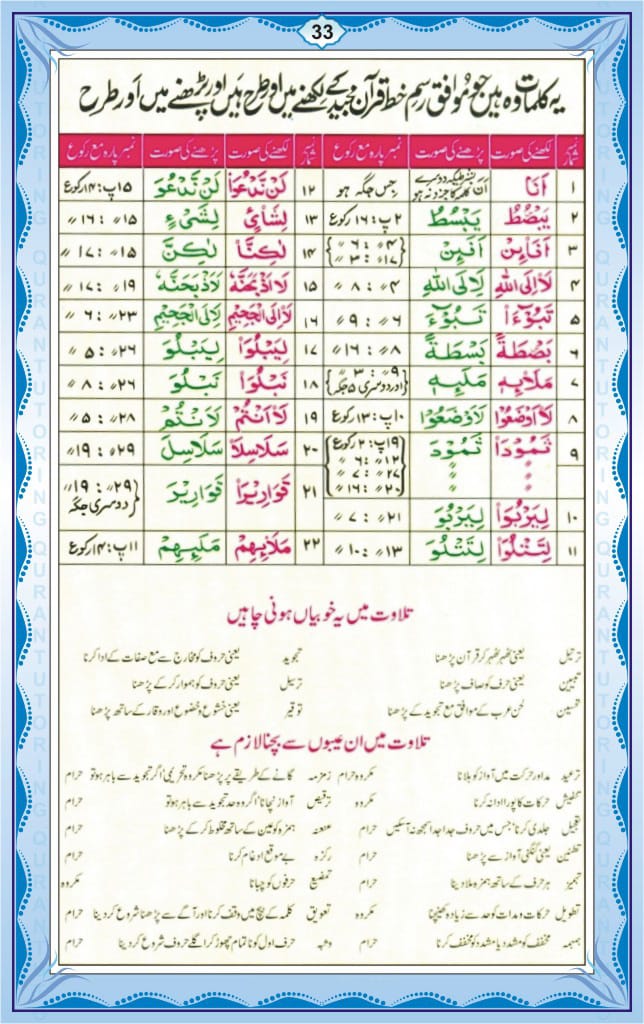 33
یہ کلمات وہ ہیں جو موافق رسم خط قرآن مجید کے لکھنے میں اور طرح ہیں اور پڑھنے میں اور طرح
نمبر شمار لکھنے کی صورت پڑھنے کی صورت نمبر پارہ مع رکوع نمبر شمار لکھنے کی صورت پڑھنے کی صورت نمبر پارہ مع رکوع
۱ اَنَا اَنَ جس جگہ ہو ۱۲ لَنْ نَّدْعُوَا۟ لَنْ نَّدْعُوَ ۱۵پ: ۱۴ رکوع
۲ يَبْصُۜطُ يَبْسُطُ ۲پ: ۱۶ رکوع ۱۳ لِشَا۟یْءٍ لِشَیْءٍ ۱۵〃: ۱۶〃
۳ اَفَا۟ئِنْ اَفَئِنْ ۴〃: ۶〃 ۱۷〃: ۳〃 ۱۴ لٰكِنَّا۟ لٰكِنَّ ۱۵〃: ۱۷〃
۴ لَا۟اِلَى اللّٰهِ لَاِلَى اللّٰهِ ۴〃: ۸〃 ۱۵ لَا۟اَذْبَحَنَّهٗ لَاَذْبَحَنَّهٗ ۱۹〃: ۱۷〃
۵ تَبُوْٓءَا۟ تَبُوْٓءَ ۶〃: ۹〃 ۱۶ لَا۟اِلَى الْجَحِيْمِ لَاِلَى الْجَحِيْمِ ۲۳〃: ۶〃
۶ بَصْۜطَةً بَسْطَةً ۸〃: ۱۶〃 ۱۷ لِيَبْلُوَا۟ لِيَبْلُوَ ۲۶〃: ۵〃
۷ مَلَا۟ئِهٖ مَلَئِهٖ ۹〃: ۳〃 اور دوسری ۵ جگہ ۱۸ نَبْلُوَا۟ نَبْلُوَ ۲۶〃: ۸〃
۸ لَا۟اَوْضَعُوْا لَاَوْضَعُوْا ۱۰پ: ۱۳ رکوع ۱۹ لَا۟اَنْتُمْ لَاَنْتُمْ ۲۸〃: ۵〃
۹ ثَمُوْدَا۟ ثَمُوْدَ ۱۹پ: ۲ رکوع ۱۲〃: ۶〃 ۲۷〃: ۷〃 ۲۰〃: ۱۶〃 ۲۰ سَلٰسِلَا۟ سَلٰسِلَ ۲۹〃: ۱۹〃
۲۱ قَوَارِيْرَا۟ قَوَارِيْرَ ۲۹〃: ۱۹〃 دوسری جگہ
۱۰ لِيَرْبُوَا۟ لِيَرْبُوَ ۲۱〃: ۷〃
۱۱ لِتَتْلُوَا۟ لِتَتْلُوَ ۱۳〃: ۱۰〃 ۲۲ مَلَا۟ئِهِمْ مَلَئِهِمْ ۱۱پ: ۱۴ رکوع
تلاوت میں یہ خوبیاں ہونی چاہیں
ترتیل یعنی ٹھہر ٹھہر کر قرآن پڑھنا تجوید یعنی حروف کو مخارج سے مع صفات کے ادا کرنا
تبیین یعنی حرف کو صاف پڑھنا ترسیل یعنی حروف کو ہموار کر کے پڑھنا
تحسین لحن عرب کے موافق مع تجوید کے پڑھنا توقیر یعنی خشوع و خضوع اور وقار کے ساتھ پڑھنا
تلاوت میں ان عیبوں سے بچنا لازم ہے
ترعید مد اور حرکت میں آواز کو ہلانا مکروہ حرام زمزمہ گانے کے طریقے پر پڑھنا مکروہ تحریمی اگر تجوید سے باہر ہو تو حرام
حرکات کا پورا ادا نہ کرنا مکروہ ترقیص آواز نچانا اگر وہ حد تجوید سے باہر ہو تو حرام
تعجیل جلدی کرنا جس میں حروف جدا جدا سمجھ نہ آسکیں حرام عنعنہ ہمزہ کو عین کے ساتھ مخلوط کر کے پڑھنا حرام
تطنین یعنی گنگنی آواز سے پڑھنا حرام رکزہ بے موقع ادغام کرنا حرام
تہمیز ہر حرف کے ساتھ ہمزہ ملا دینا حرام تمضیغ حرفوں کو چبانا مکروہ
تطویل حرکات و مدات کو حد سے زیادہ کھینچنا مکروہ تعویق کلمہ کے بیچ میں وقف کرنا اور آگے سے پڑھنا شروع کر دینا حرام
ہمہمہ مخفف کو مشدد یا مشدد کو مخفف کرنا حرام وثبہ حرف اول کو ناتمام چھوڑ کر اگلے حروف شروع کر دینا حرام
QURAN TUTORING QURAN TUTORING QURAN TUTORING
QURAN TUTORING QURAN TUTORING QURAN TUTORING